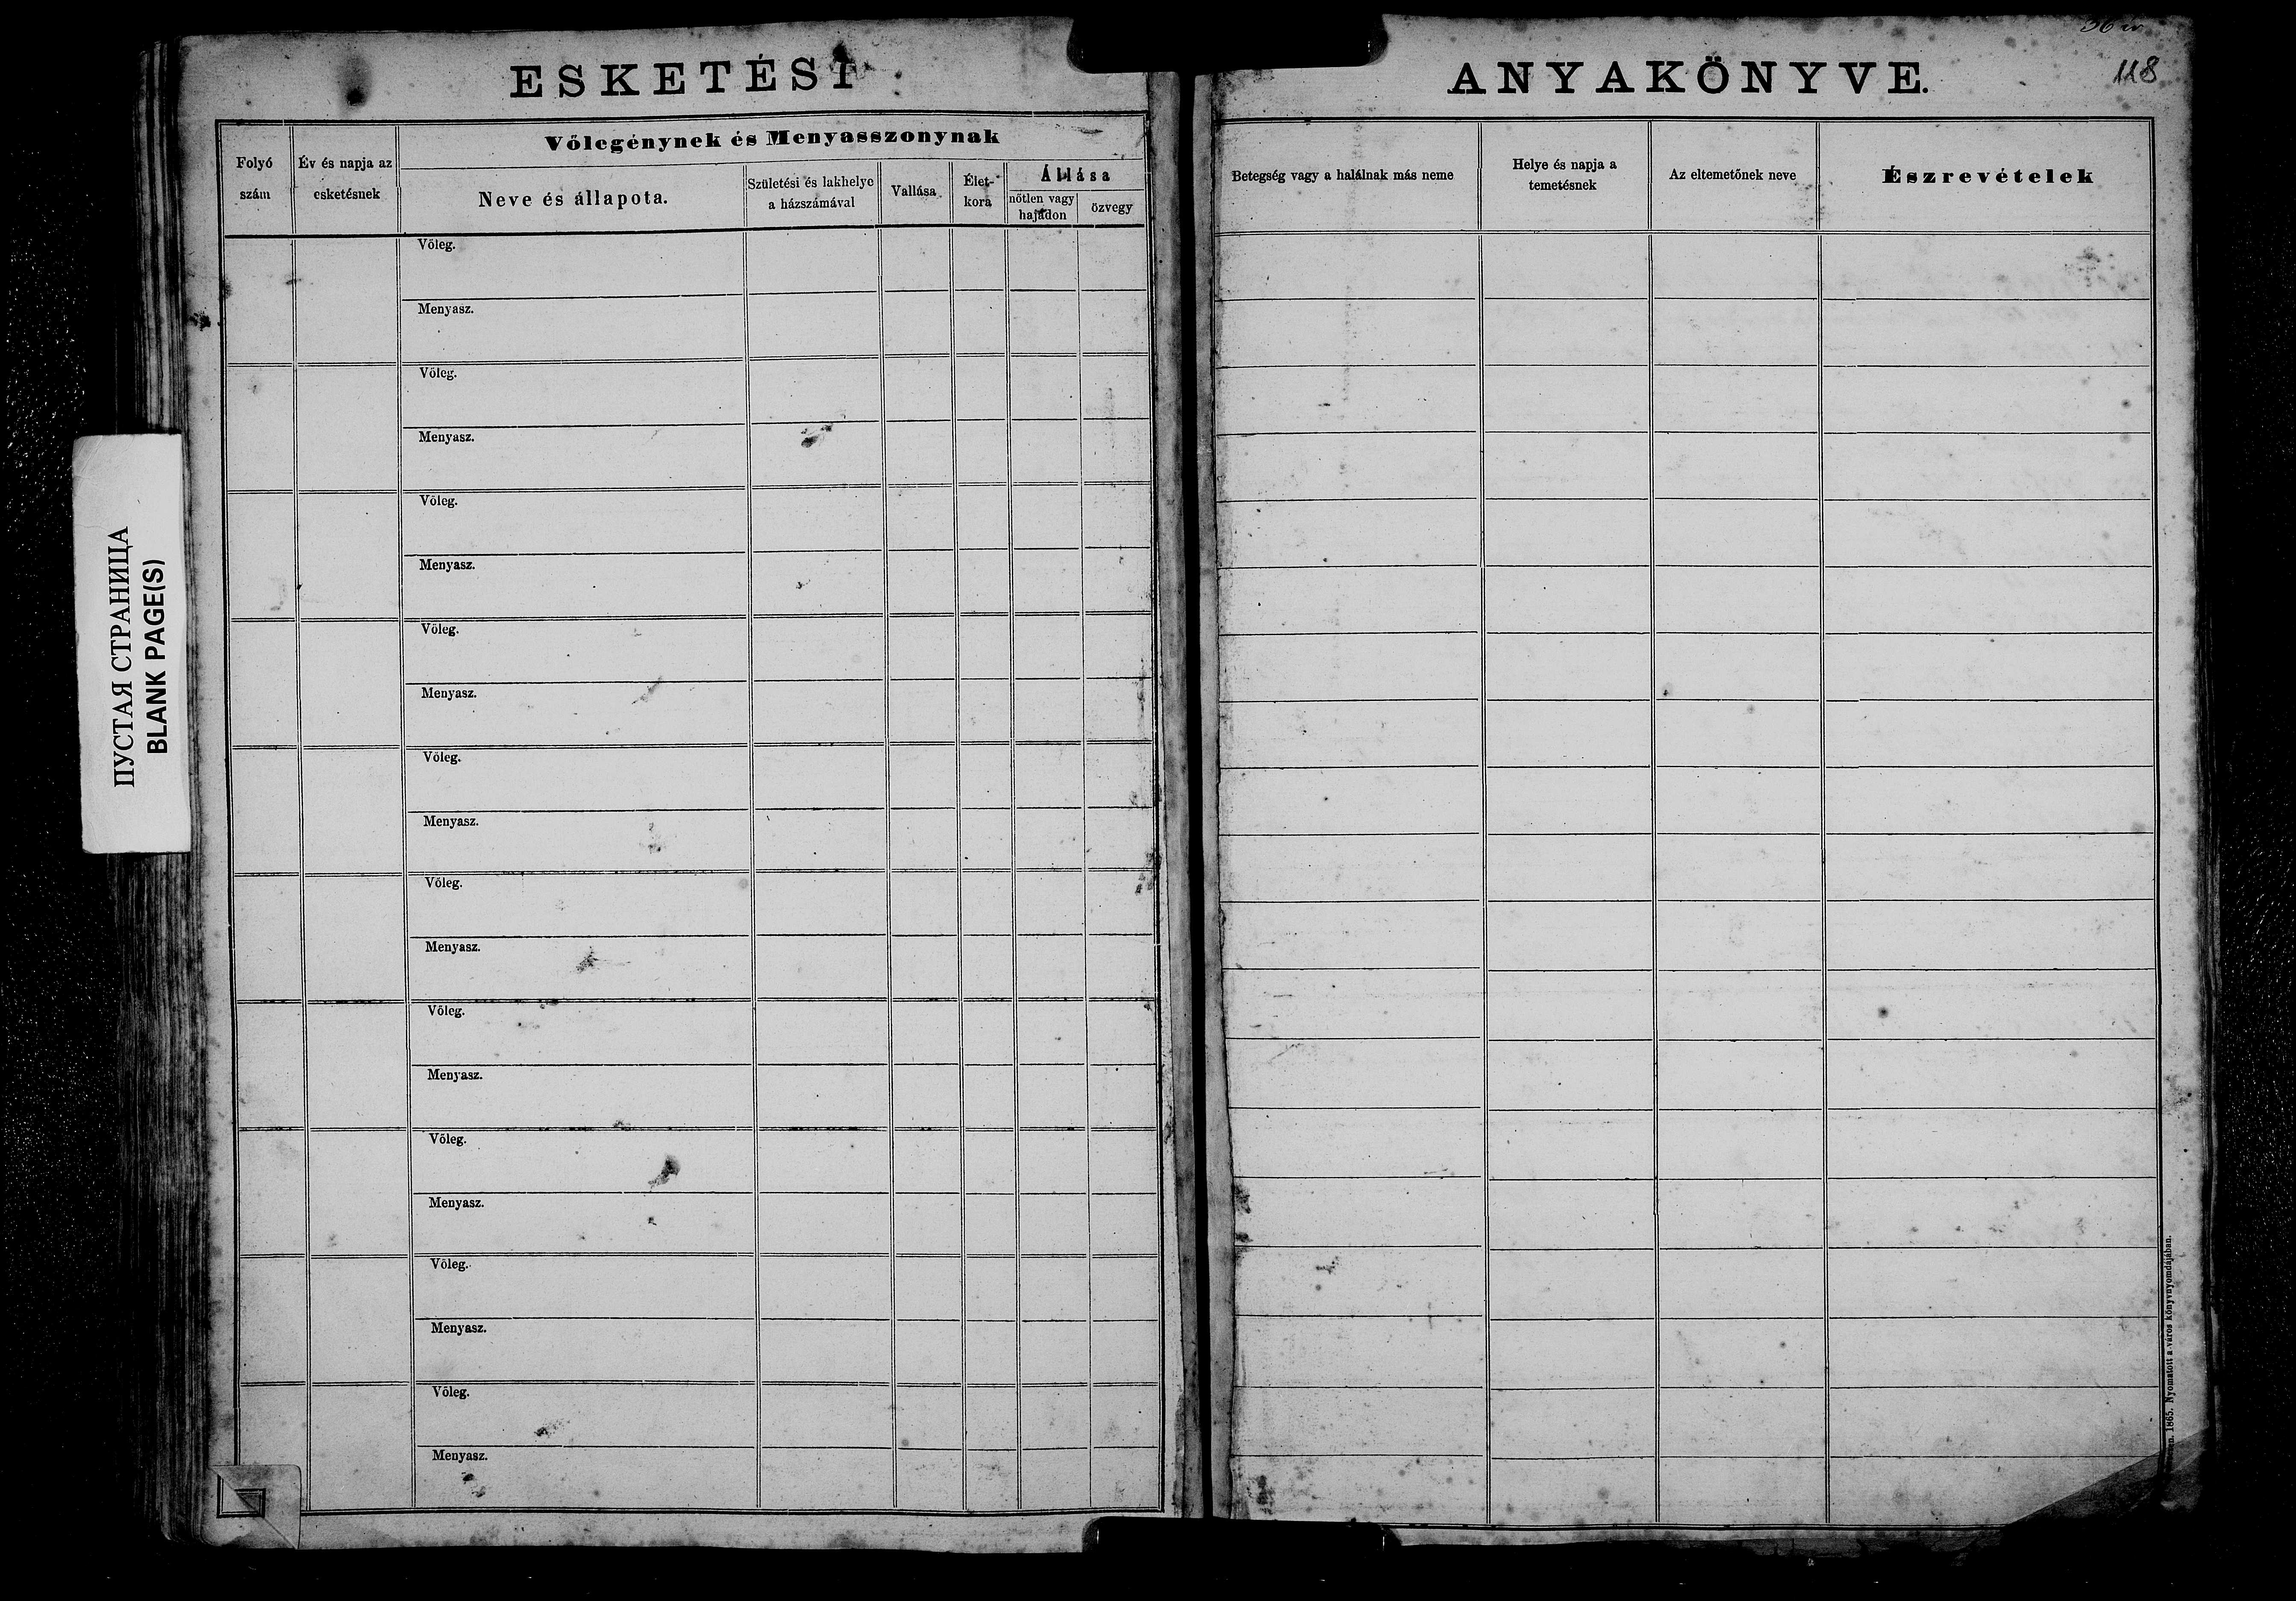 ESKETÉSI
Vőlegénynek és Menyasszonynak
Folyó
szám
Év és napja az
esketésnek
Neve és állapota.
Születési és lakhelye
a házszámával
Vallása
Élet-
kora
Állása
nőtlen vagy
hajadon
özvegy
Vőleg.
Menyasz.
Vőleg.
Menyasz.
Vőleg.
Menyasz.
Vőleg.
Menyasz.
Vőleg.
Menyasz.
Vőleg.
Menyasz.
Vőleg.
Menyasz.
Vőleg.
Menyasz.
Vőleg.
Menyasz.
Vőleg.
Menyasz.
ПУСТАЯ СТРАНИЦА
BLANK PAGE(S)
118
ANYAKÖNYVE.
Betegség vagy a halálnak más neme
Helye és napja a
temetésnek
Az eltemetőnek neve
Észrevételek
1865. Nyomatott a város könyvnyomdájában.